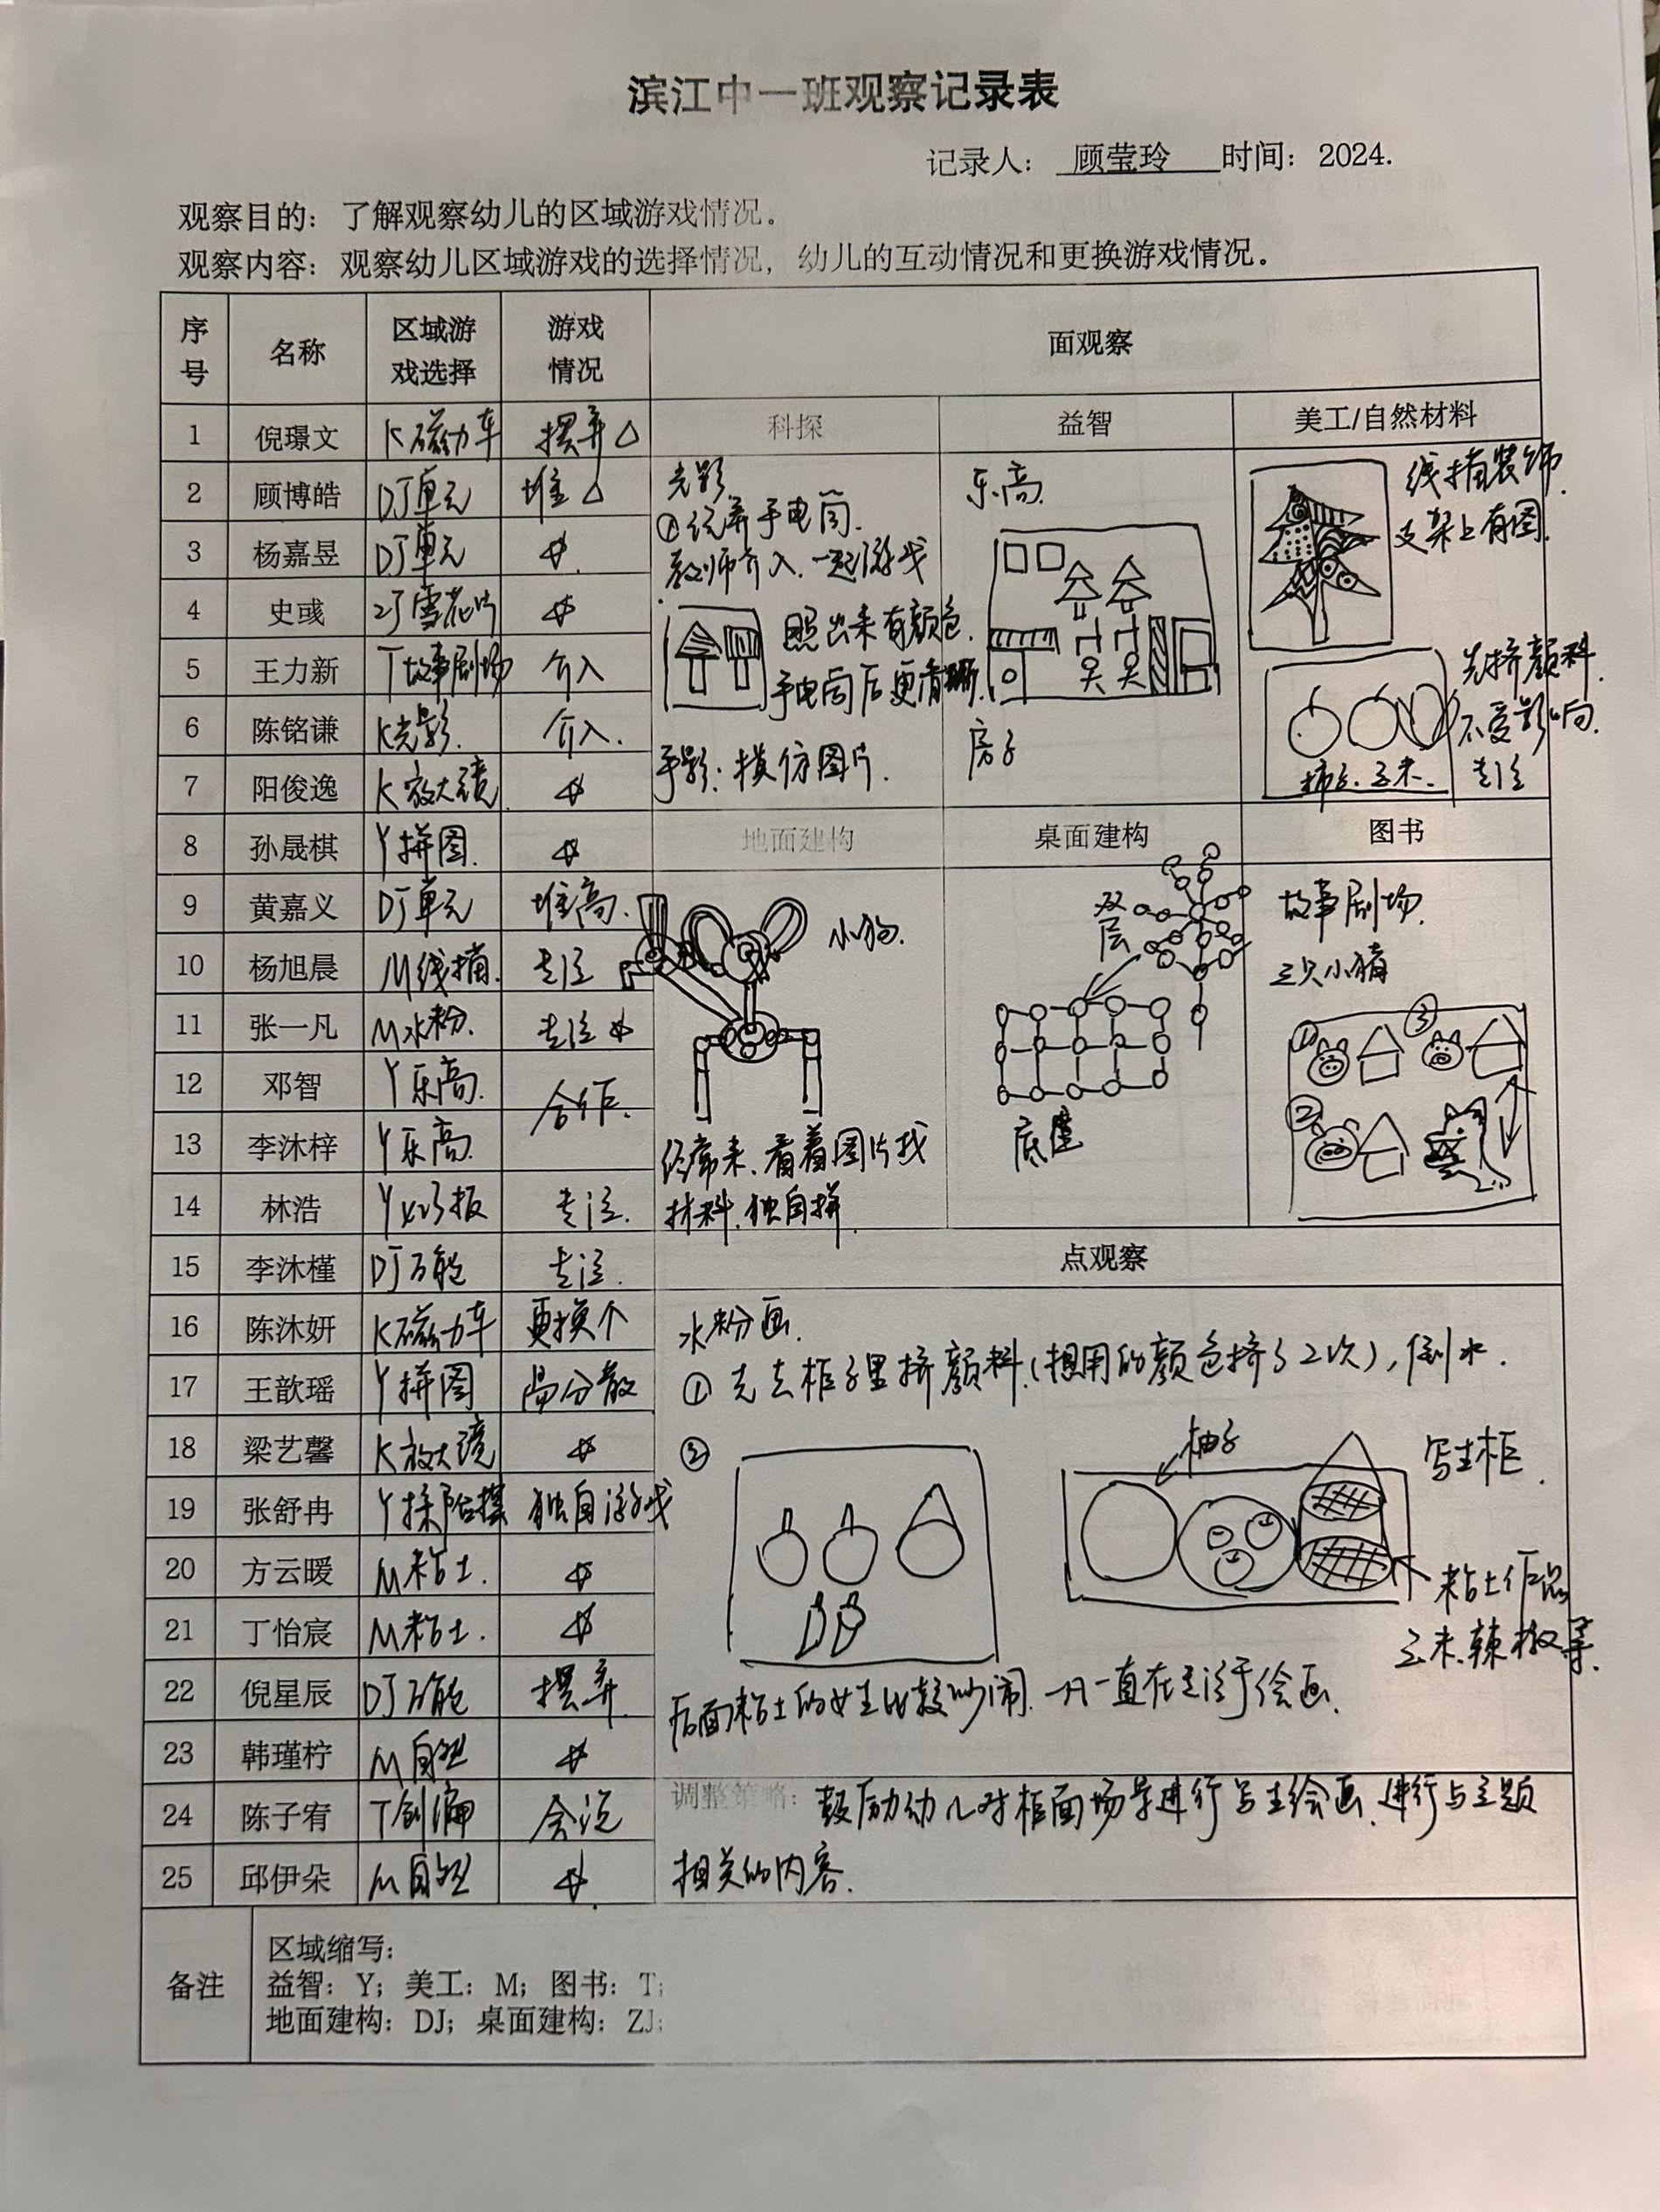 滨江中一班观察记录表
记录人： 顾莹玲 时间：2024.
观察目的：了解观察幼儿的区域游戏情况。
观察内容：观察幼儿区域游戏的选择情况，幼儿的互动情况和更换游戏情况。
序号 名称 区域游戏选择 游戏情况 面观察
1 倪璟文 K磁动车 摆弄△
2 顾博皓 DJ单元 堆△
3 杨嘉昱 DJ单元
4 史彧 ZJ雪花片
5 王力新 T故事剧场 介入
6 陈铭谦 K光影. 介入.
7 阳俊逸 K放大镜
8 孙晟棋 Y拼图.
9 黄嘉义 DJ单元 堆高.
10 杨旭晨 M线描. 专注
11 张一凡 M水粉. 专注
12 邓智 Y乐高. 合作.
13 李沐梓 Y乐高.
14 林浩 Y 专注.
15 李沐槿 DJ万能 专注.
16 陈沐妍 K磁动车 更换个
17 王歆瑶 Y拼图 易分散
18 梁艺馨 K放大镜
19 张舒冉 Y 独自游戏
20 方云暖 M粘土.
21 丁怡宸 M粘土.
22 倪星辰 DJ万能 摆弄.
23 韩瑾柠 M自然
24 陈子宥 T创编 会说
25 邱伊朵 M自然
科探
光影
①玩弄手电筒.
教师介入.一起游戏
照出来有颜色.
手电筒后更清晰.
手影：模仿图片.
益智
乐高.
房子
美工/自然材料
线描装饰.
支架上有图.
先挤颜料.
不受影响.
专注
柿子.玉米.
地面建构
小狗.
经常来.看着图片找
材料.独自拼.
桌面建构
双层
底座
图书
故事剧场.
三只小猪
① ③
②
点观察
水粉画.
①先去柜子里挤颜料.(想用的颜色挤了2次),倒水.
②
柚子
写生柜.
粘土作品
玉米.辣椒等.
后面粘土的女生比较吵闹.一凡一直在专注于绘画.
调整策略：鼓励幼儿对柜面场景进行写生绘画.进行与主题
相关的内容.
备注
区域缩写：
益智：Y；美工：M；图书：T；
地面建构：DJ；桌面建构：ZJ；